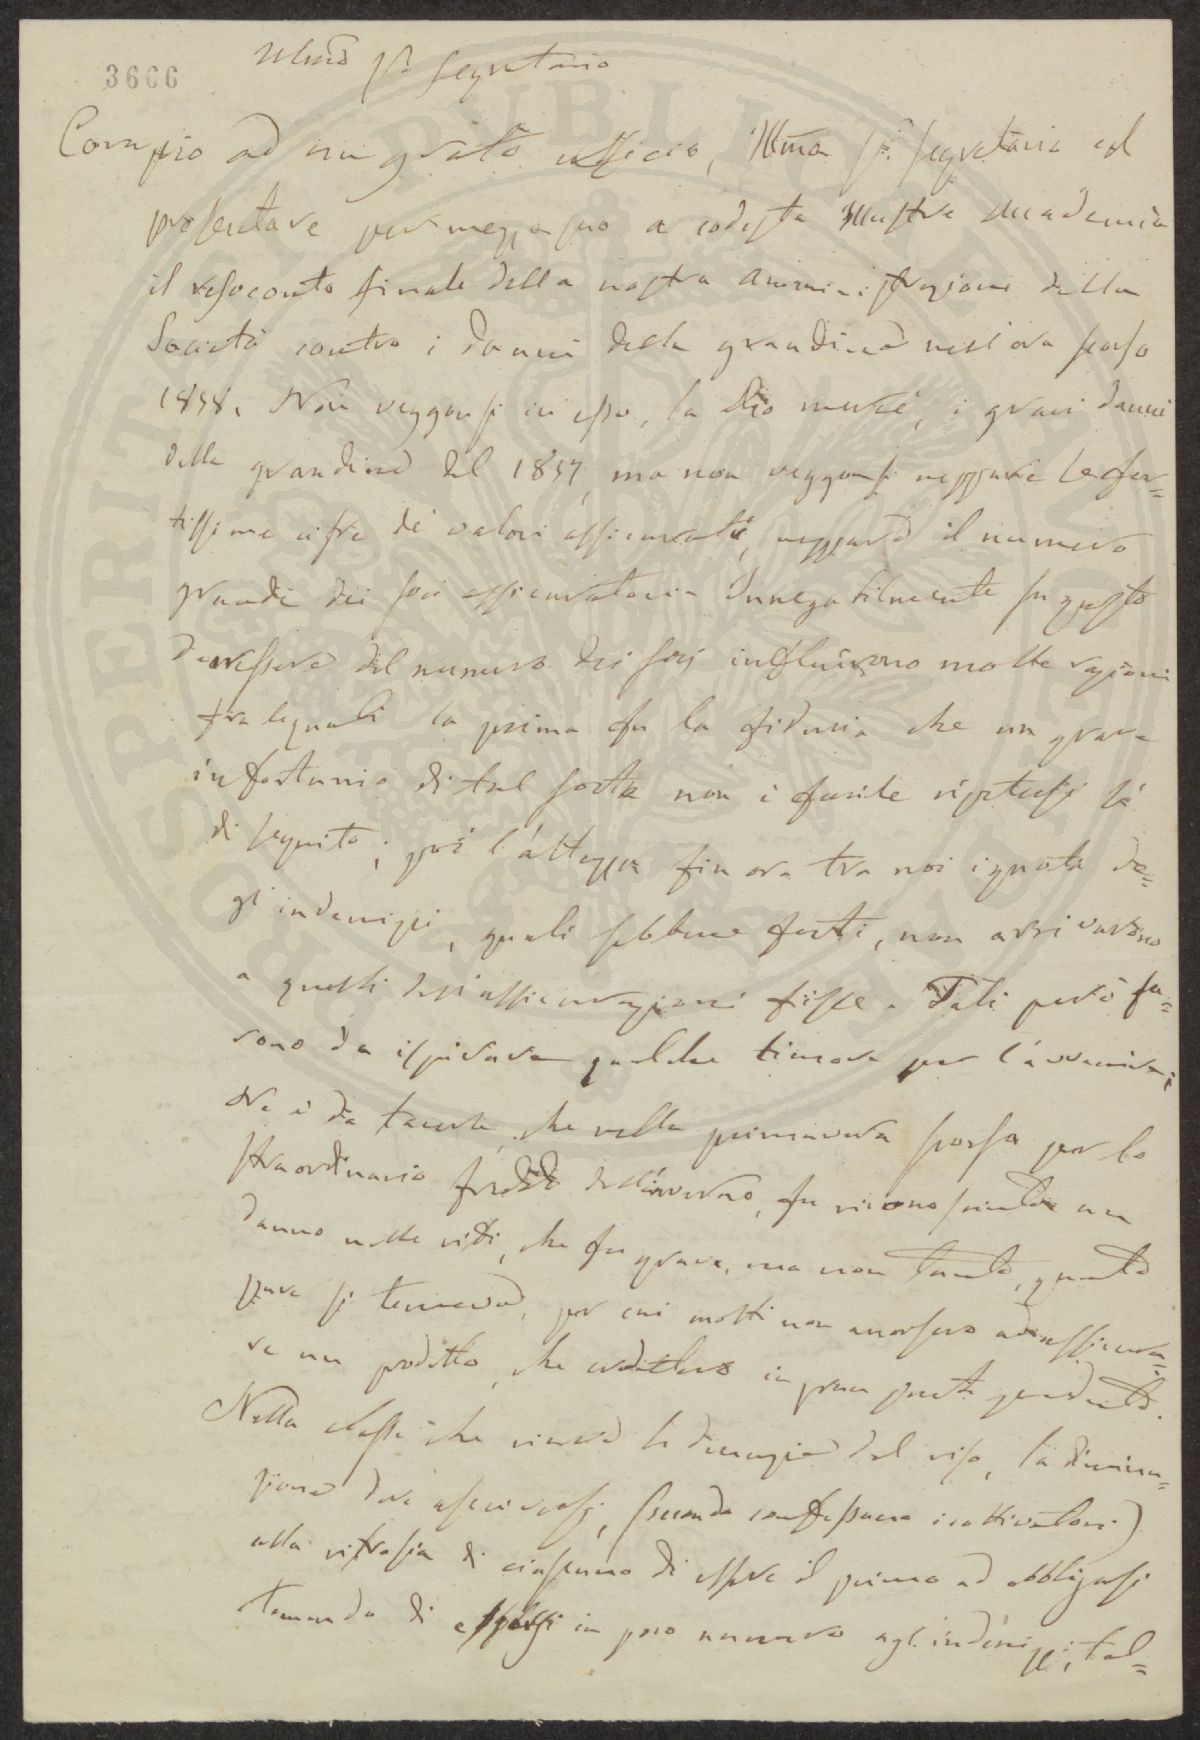 3666
Illmo Sr Segretario
Compio ad un grato ufficio, Illmo Sr. Segretario col
presentare per mezzo suo a codesta Illustre Accademia
il resoconto finale della nostra Amministrazione della
Società contro i danni della grandine nell'ora scorso
1858. Non veggonsi in esso, la Dio mercé, i gravi danni
della grandine del 1857, ma non veggonsi neppure le for-
tissime cifre de' valori assicurati, neppure il numero
grande dei soci assicuratori. Innegabilmente su questo
decrescere del numero dei socj influirono molte ragioni
fra le quali la prima fu la fiducia che un grave
infortunio di tal sorta non è facile ripetersi
di seguito; poi l'altezza finora tra noi ignota de-
gl'indennizzi, quali sebbene forti, non arrivarono
a quelli dell'assicurazioni fisse. Tali però fu-
rono da ispirare qualche timore per l'avvenire;
Ne è da tacersi, che nella primavera scorsa per lo
straordinario freddo dell'inverno, fu riconosciuto un
danno nelle viti, che fu grave, ma non tanto, quanto
pure si temeva, per cui molti non accorsero ad assicura-
re un prodotto, che credettero in gran parte perduto.
Nella classe che riceve le dinunzie del riso, la diminu-
zione deve ascriversi, (secondo confessano i coltivatori)
alla ritrosia di ciascuno di essere il primo ad obbligarsi
temendo di esporsi in poco numero agl'indenizzi; tal-